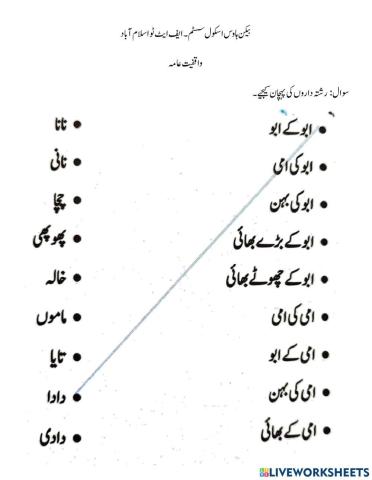 بیکن ہاؤس اسکول سسٹم۔ ایف ایٹ ٹو اسلام آباد
واقفیت عامہ
سوال: رشتہ داروں کی پہچان کیجیے۔
ابو کے ابو
نانا
ابو کی امی
نانی
ابو کی بہن
چچا
ابو کے بڑے بھائی
پھوپھی
ابو کے چھوٹے بھائی
خالہ
امی کی امی
ماموں
امی کے ابو
تایا
امی کی بہن
دادا
امی کے بھائی
دادی
LIVEWORKSHEETS